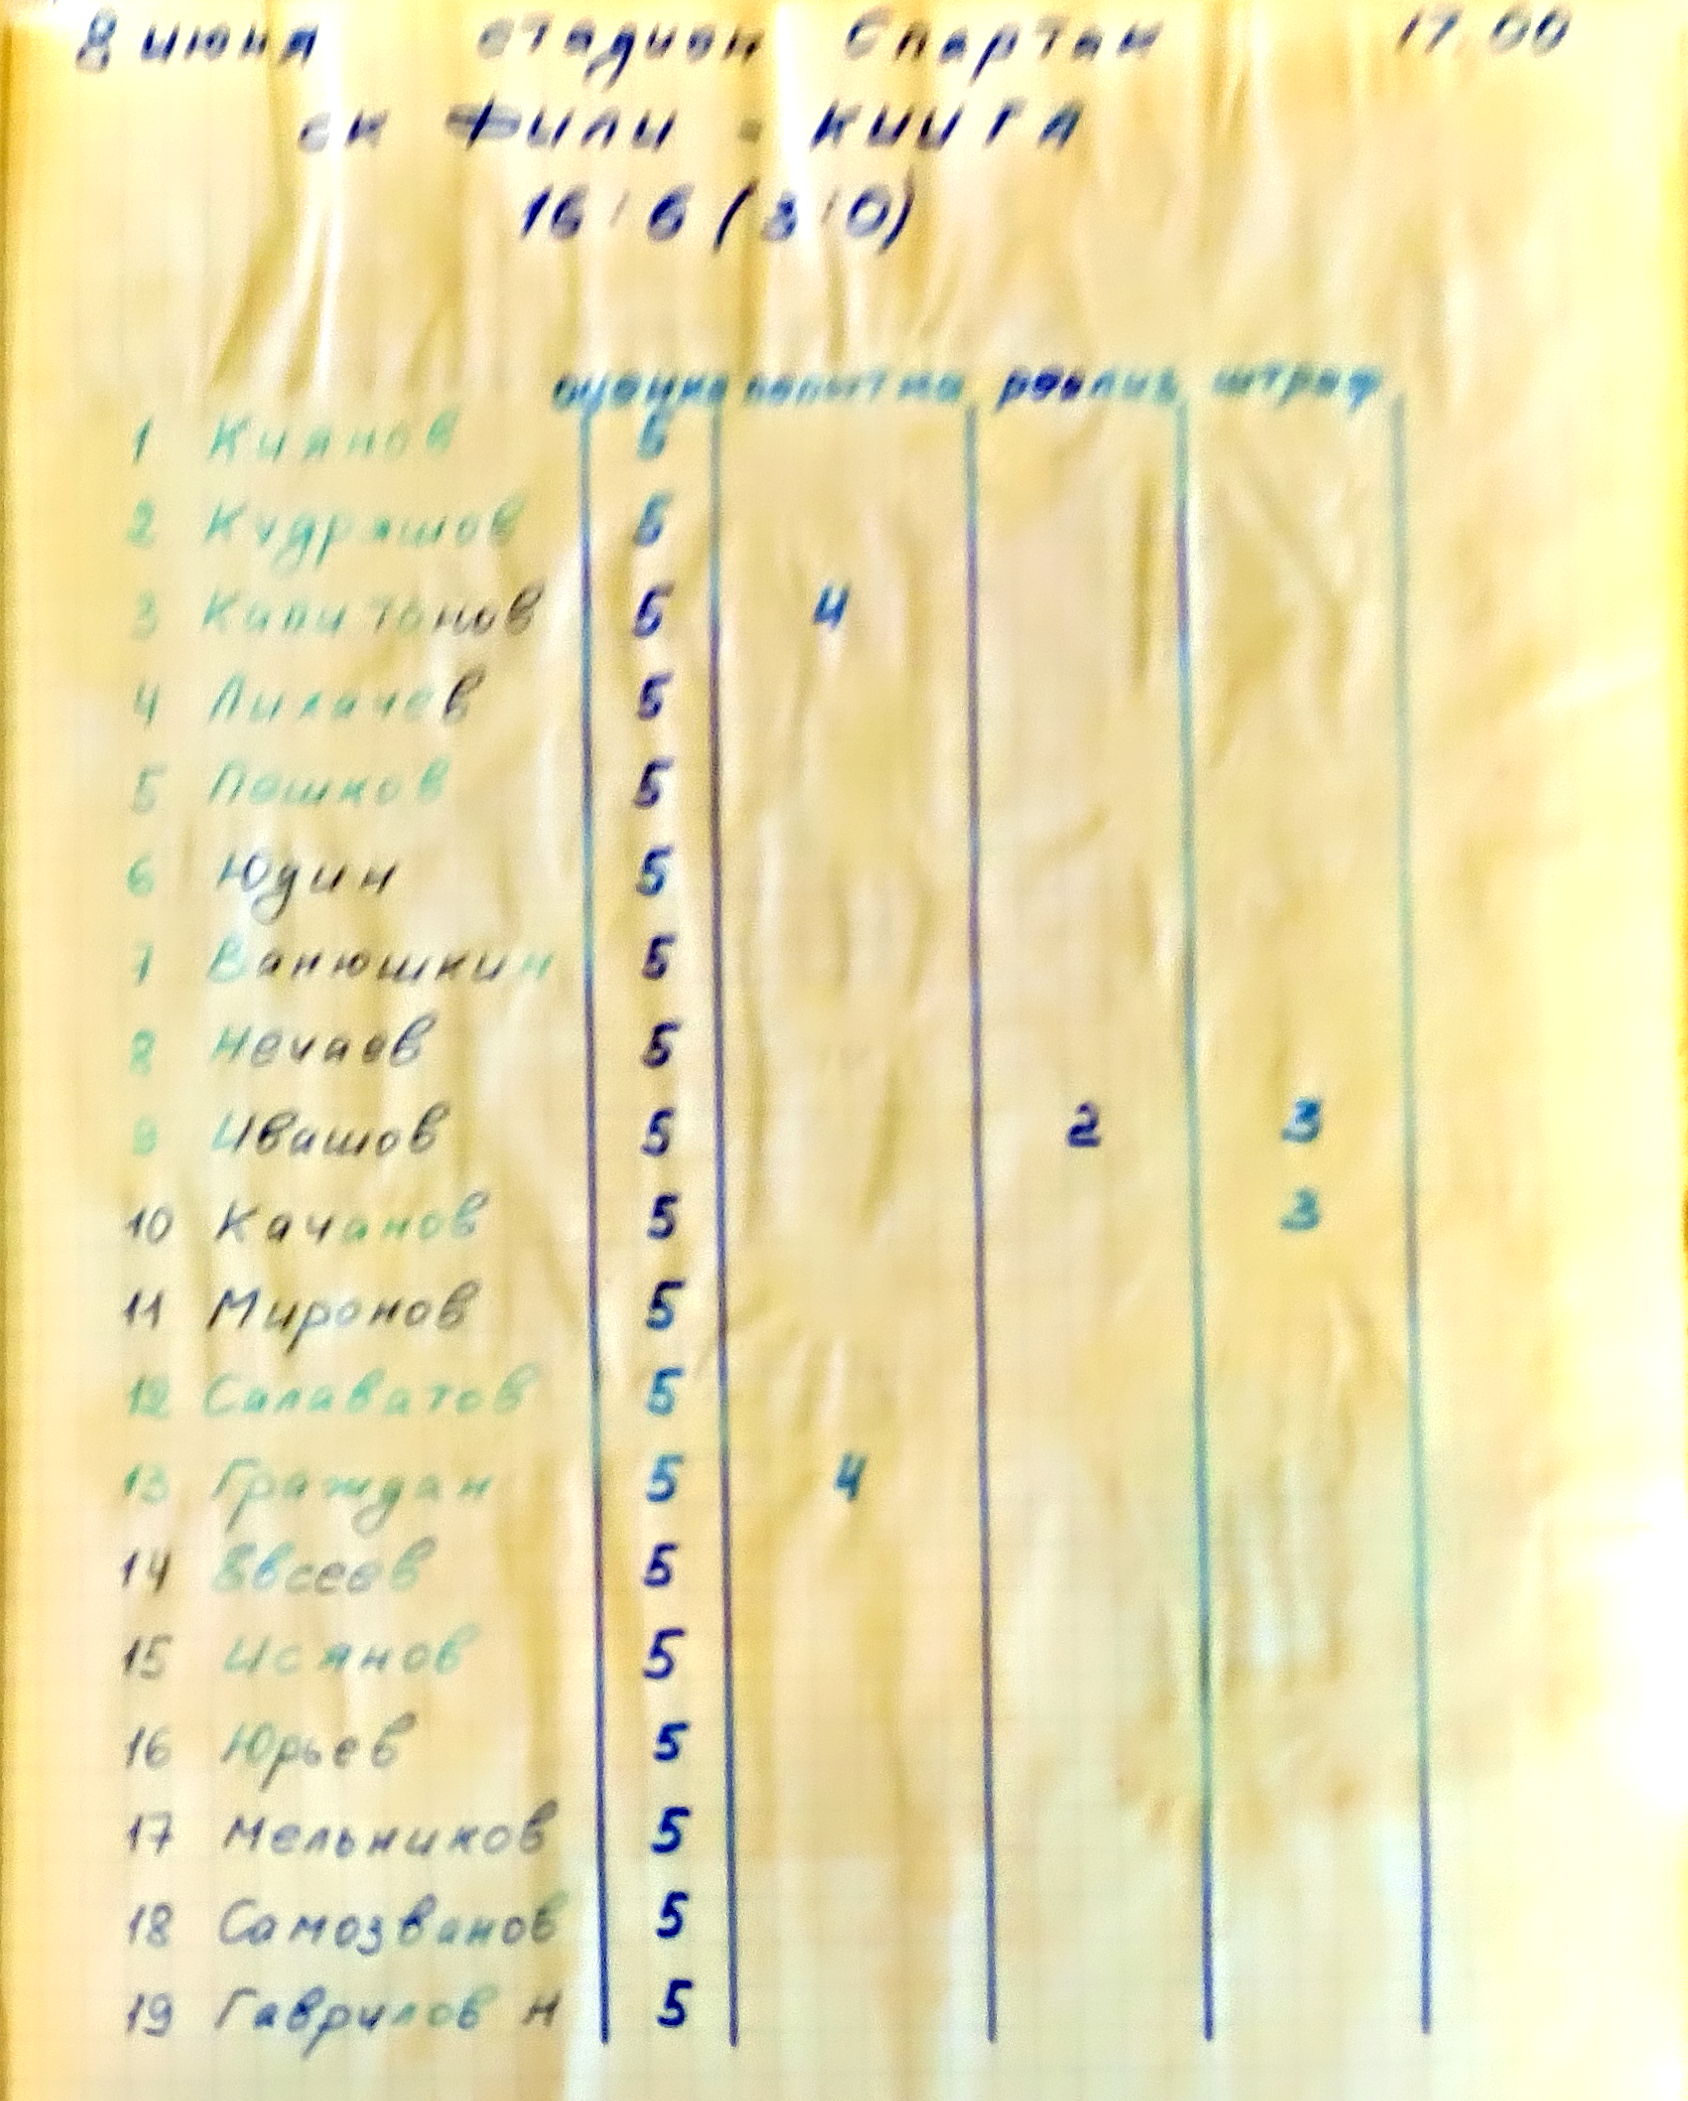 8 июня стадион Спартак 17.00
СК Фили - КИИГА
16:6 (3:0)
оценка попытка реализ штраф
1 Киянов 5
2 Кудряшов 5
3 Капитонов 5 4
4 Лихачев 5
5 Пешков 5
6 Юдин 5
7 Ванюшкин 5
8 Нечаев 5
9 Ивашов 5 2 3
10 Качанов 5 3
11 Миронов 5
12 Салаватов 5
13 Граждан 5 4
14 Евсеев 5
15 Исянов 5
16 Юрьев 5
17 Мельников 5
18 Самозванов 5
19 Гаврилов Н 5